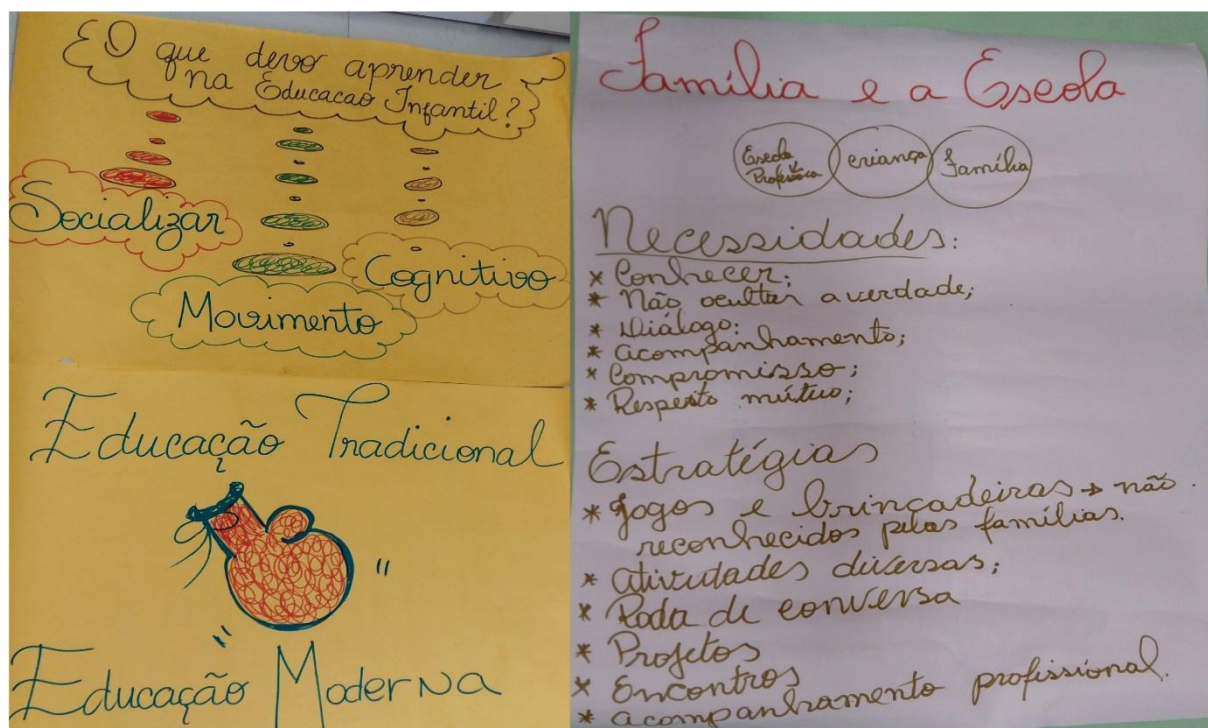 O que devo aprender
na Educacao Infantil?
Socializar
Cognitivo
Movimento
Educação Tradicional
"
"
Educação Moderna
Família e a Escola
Escola
Professora
criança
Família
Necessidades:
* Conhecer;
* Não ocultar a verdade;
* Diálogo:
* acompanhamento;
* Compromisso;
* Respeito mútuo;
Estratégias
* Jogos e brincadeiras → não
reconhecidos pelas famílias.
* atividades diversas;
* Roda de conversa
* Projetos
* Encontros
* acompanhamento profissional.